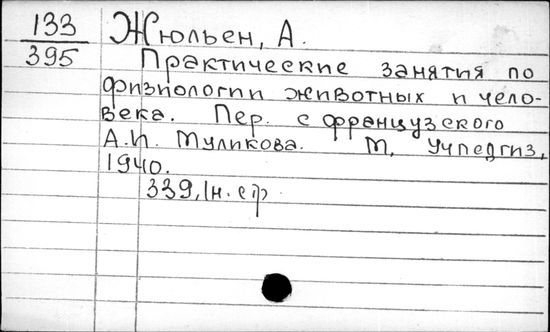 133 Жюльен, А.
395 Практические занятия по
физиологии животных и чело-
века. Пер. с французского
А.И. Муликова. М, Учпедгиз,
1940.
339, 1н. стр